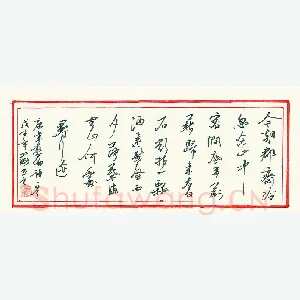 今朝郡齋冷
忽念山中
客澗底束荆
薪歸來煮白
石欲持一瓢
酒遠慰風雨
夕落葉滿
空山何處
尋行迹
Shufawang.CN